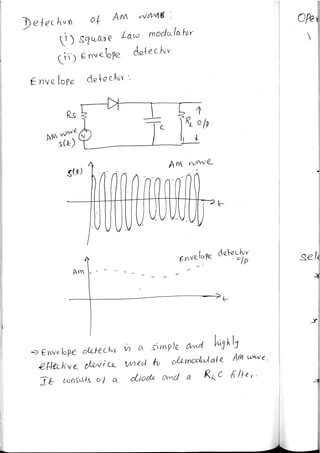 Detection of AM wave :
(i) Square Law modulator
(ii) Envelope detector
Envelope detector :
Rs
AM wave
s(t)
C
RL o/p
s(t)
AM wave
t
Envelope detector o/p
Am
t
→ Envelope detector is a simple and highly
effective device used to demodulate AM wave.
It consists of a diode and a RLC filter.
Ope
sel